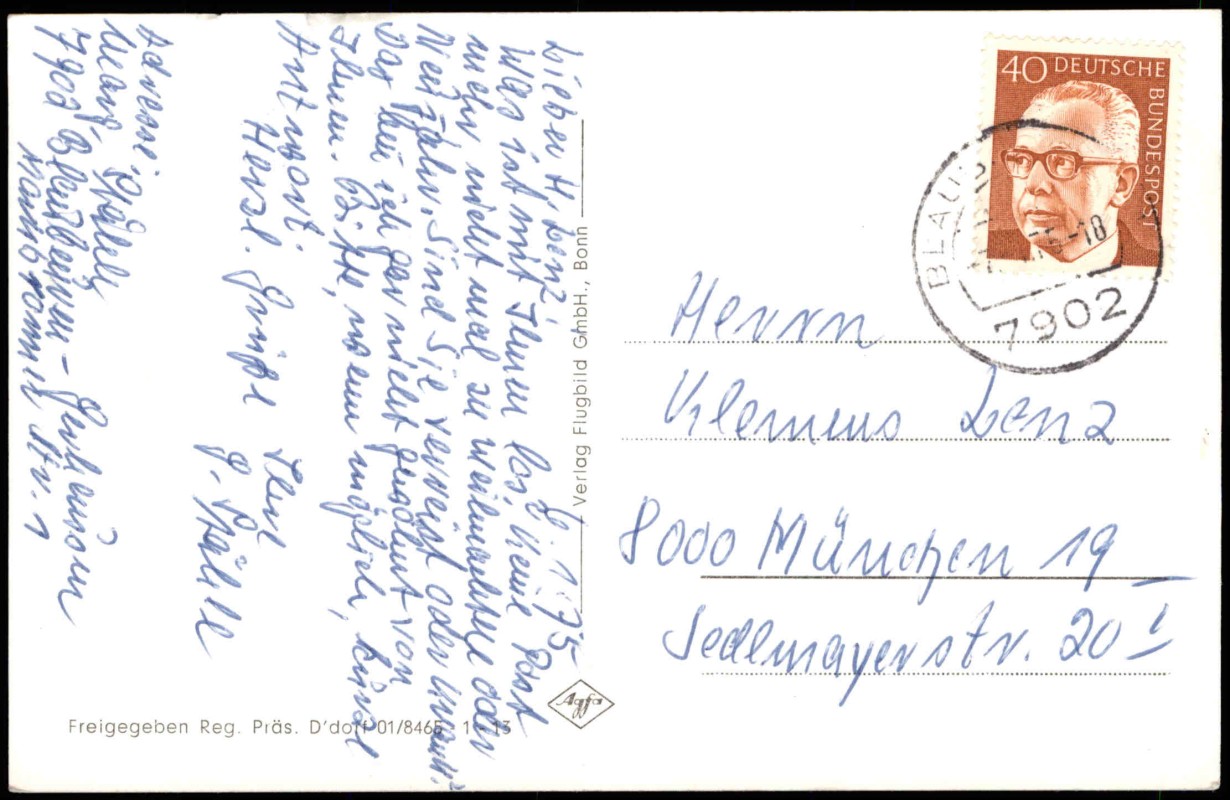 Lieber H. Lenz!
6. 1. 75
Was ist mit Ihnen los, keine Post
mehr nicht mal zu Weihnachten oder
Neu-Jahr. Sind Sie verreist oder krank?
Das bin ich gar nicht gewöhnt von
Ihnen. Bitte, wenn möglich, kurze
Antwort.
Herzl. Grüße Ihre
G. Stähle
Adresse:
Marg. Stähle
7902 Blaubeuren - Gerhausen
Str. 1
Verlag Flugbild GmbH., Bonn
Agfa
Freigegeben Reg. Präs. D'dorf 01/8465
13
40 DEUTSCHE
BUNDESPOST
BLAUB
-18
7902
Herrn
Klemens Lenz
8000 München 19
Sedlmayerstr. 20 I